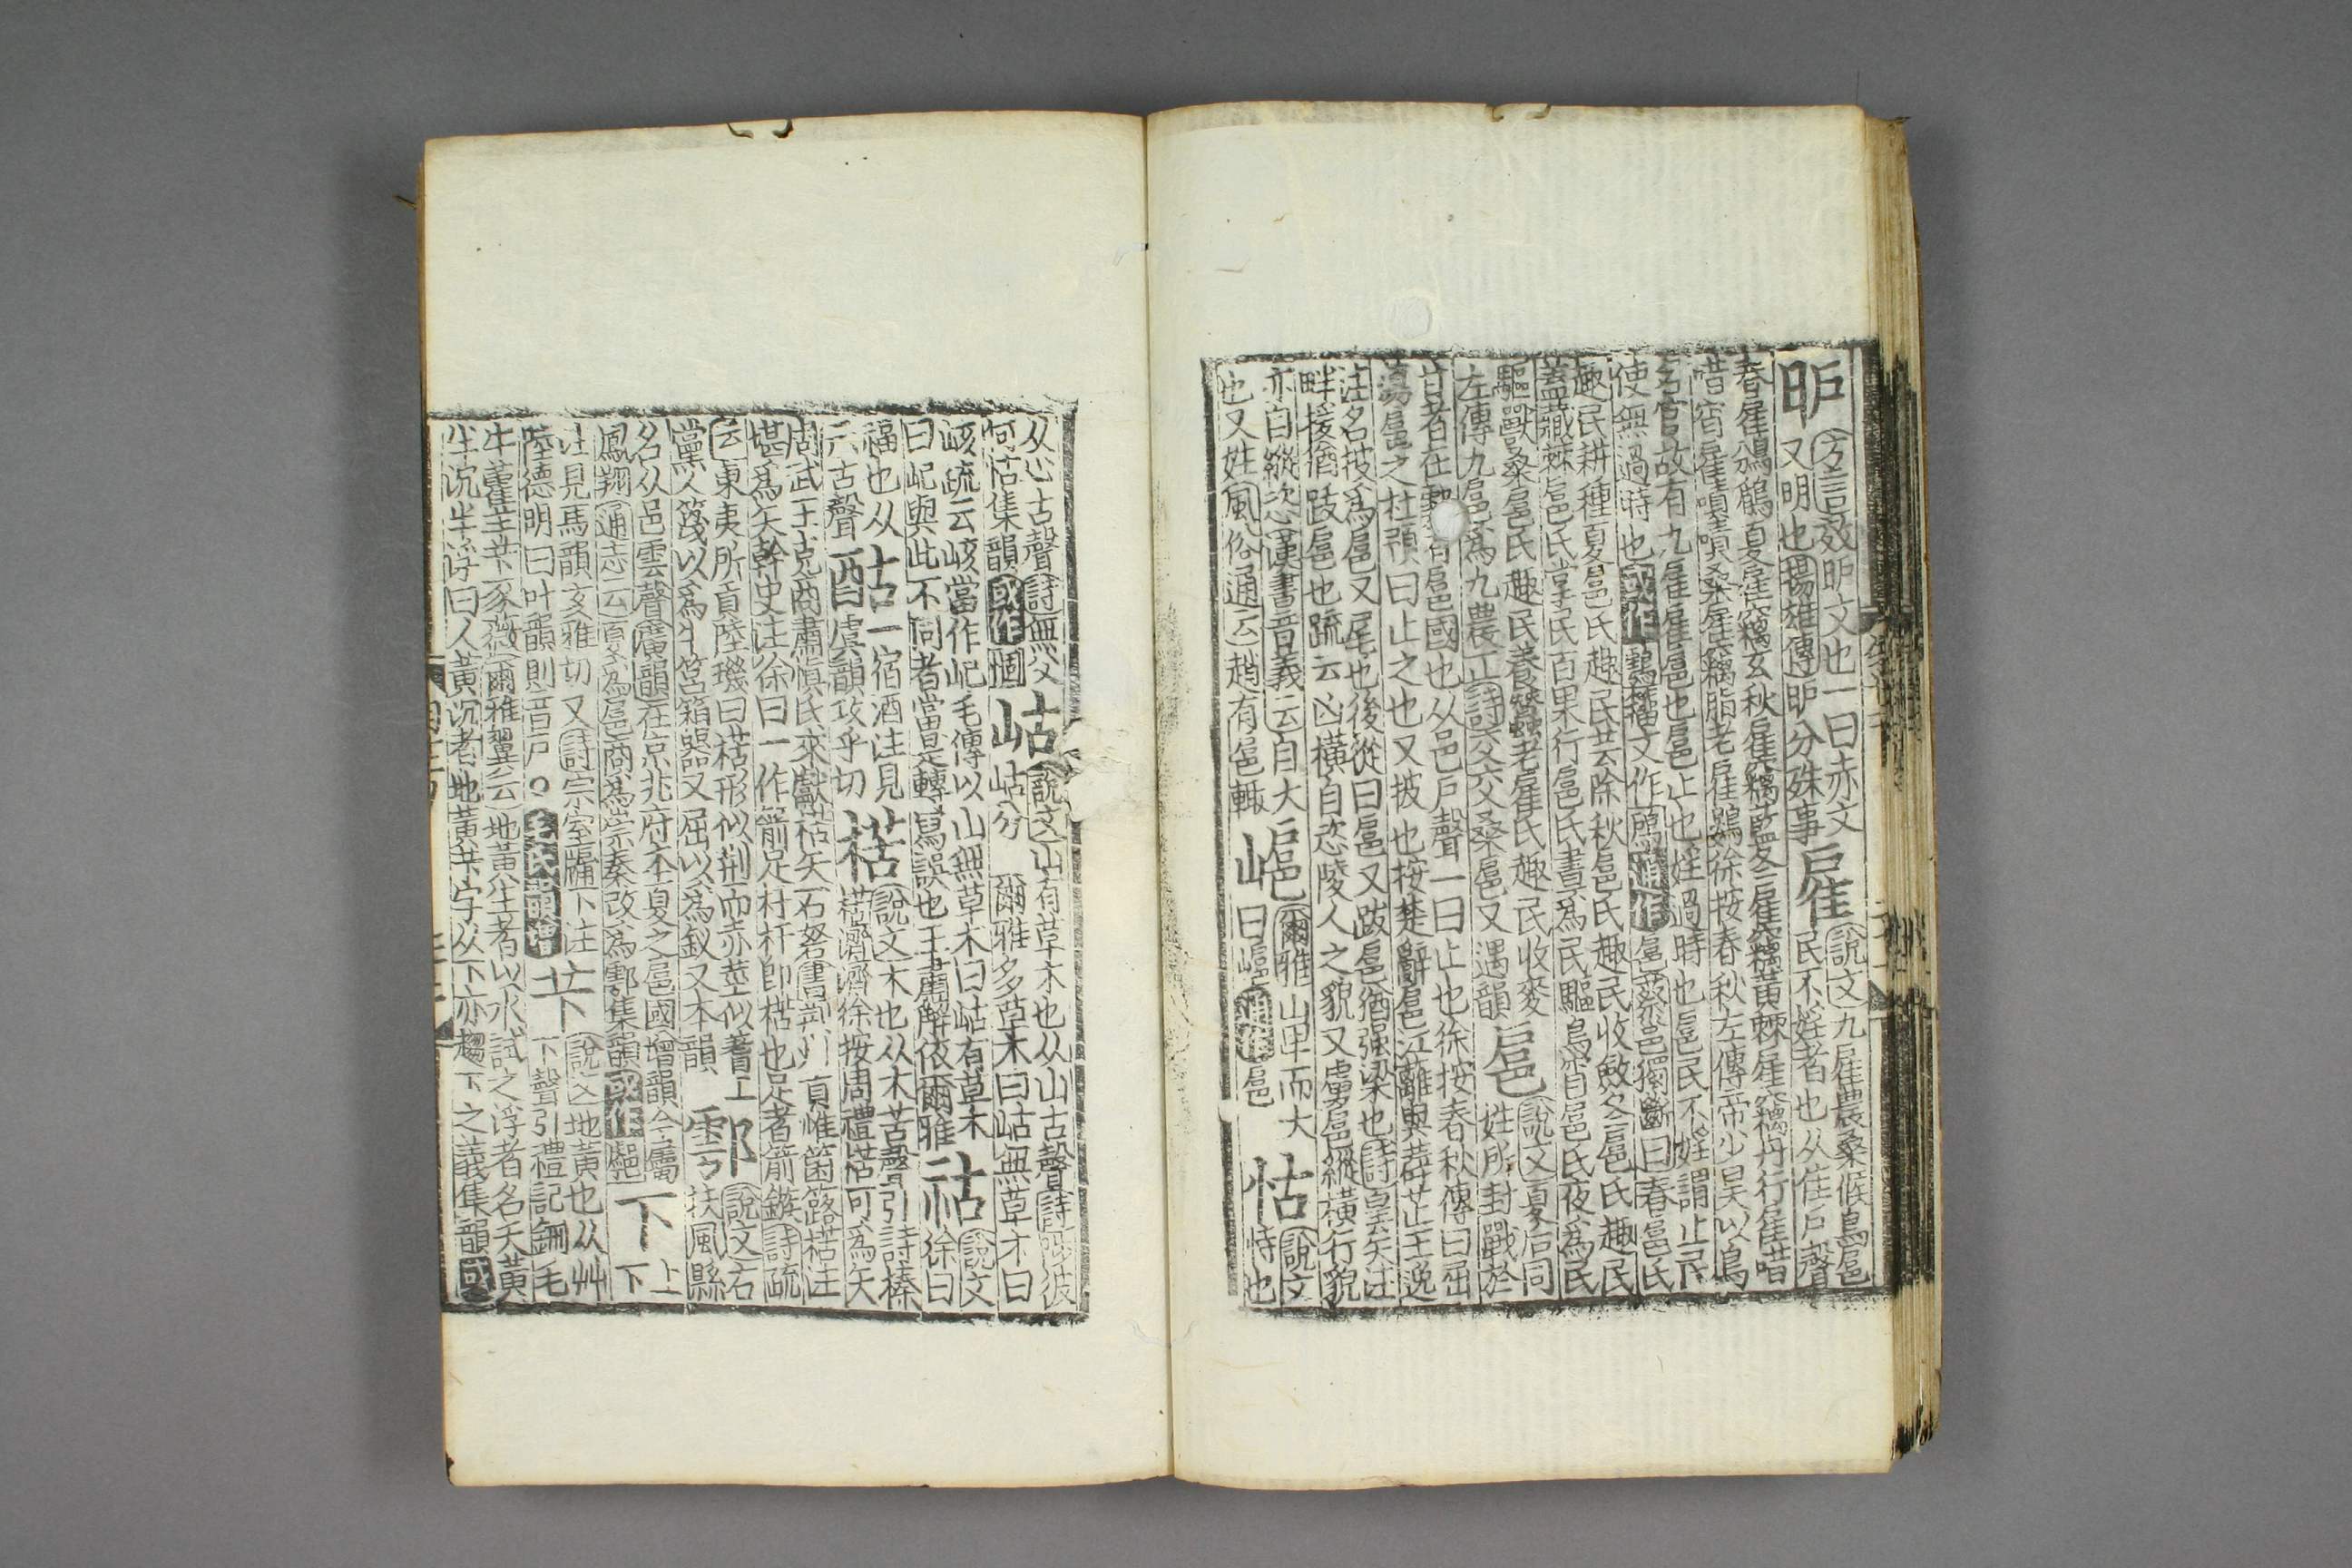 昈
方言效昈文也一曰赤文
又明也揚雄傳昈分殊事
雇
說文九雇農桑候鳥扈
民不婬者也从隹戶聲
春雇鳻鶞夏雇竊玄秋雇竊藍冬雇竊黃棘雇竊丹行雇唶
唶宵雇嘖嘖桑雇竊脂老雇鷃徐按春秋左傳帝少昊以鳥
名官故有九雇雇扈也扈止也婬過時也扈民不婬謂止民
使無過時也或作文作通作扈蔡邕獨斷曰春扈氏
趣民耕種夏扈氏趣民芸除秋扈氏趣民收斂冬扈氏趣民
蓋藏棘扈氏掌民百果行扈氏晝爲民驅鳥宵扈氏夜爲民
驅獸桑扈氏趣民養蠶老雇氏趣民收麥
左傳九扈爲九農正詩交交桑扈又遇韻
扈
說文夏后同
姓所封戰於
甘者在有扈國也从邑戶聲一曰止也徐按春秋傳曰屈
蕩扈之杜預曰止之也又披也按楚辭扈江蘺與薜芷王逸
注名披爲扈又尾也後從曰扈又跋扈猶强梁也詩皇矣注
畔援猶跋扈也疏云凶橫自恣陵人之貌又虜扈縱橫行貌
亦自縱恣漢書音義云自大
也又姓風俗通云趙有扈輒
爾雅山卑而大
曰通作扈
怙
說文
恃也
从心古聲詩無父
何怙集韻或作
岵
說文山有草木也从山古聲詩陟彼
岵兮爾雅多草木曰岵無草木曰
峐疏云峐當作屺毛傳以山無草木曰岵有草木
曰屺與此不同者當是轉寫誤也王肅解依爾雅
祜
說文
徐曰
福也从
示古聲
酤
一宿酒注見
虞韻攻乎切
楛
說文木也从木苦聲引詩榛
楛濟濟徐按周禮楛可爲矢
周武王克商肅愼氏來獻楛矢石砮書荆州貢惟箘簵楛注
堪爲矢幹史注徐曰一作箭足材杆卽楛也足者箭鏃詩疏
云東夷所貢陸璣曰楛形似荆而赤莖似蓍上
黨人篾以爲斗筥箱器又屈以爲釵又本韻
鄠
說文右
扶風縣
名从邑雩聲廣韻在京兆府本夏之扈國增韻今屬
鳳翔通志云夏爲扈商爲崇秦改爲鄠集韻或作
下
上
下
注見馬韻亥雅切又詩宗室牖下注
陸德明曰叶韻則音戶○毛氏韻增
芐
說文地黃也从艸
下聲引禮記鉶毛
牛藿羊芐豕薇爾雅翼云地黃生者以水試之浮者名天黃
半沉半浮曰人黃沉者地黃芐字从下亦趨下之義集韻或